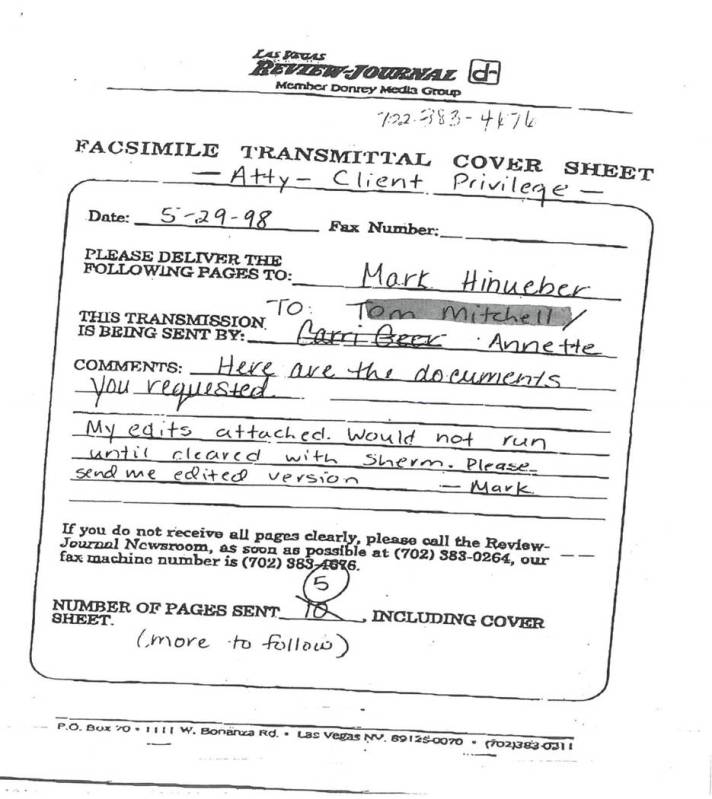 LAS VEGAS
REVIEW-JOURNAL d
Member Donrey Media Group
702-383-4676
FACSIMILE TRANSMITTAL COVER SHEET
— Atty - Client Privilege —
Date: 5-29-98 Fax Number:
PLEASE DELIVER THE
FOLLOWING PAGES TO: Mark Hinueber
TO: Tom Mitchell
THIS TRANSMISSION
IS BEING SENT BY: Carri Geer Annette
COMMENTS: Here are the documents
you requested.
My edits attached. Would not run
until cleared with Sherm. Please
send me edited version — Mark
If you do not receive all pages clearly, please call the Review-
Journal Newsroom, as soon as possible at (702) 383-0264, our
fax machine number is (702) 383-4676.
5
NUMBER OF PAGES SENT 10, INCLUDING COVER
SHEET.
(more to follow)
P.O. Box 70 • 1111 W. Bonanza Rd. • Las Vegas NV. 89125-0070 • (702)383-0211